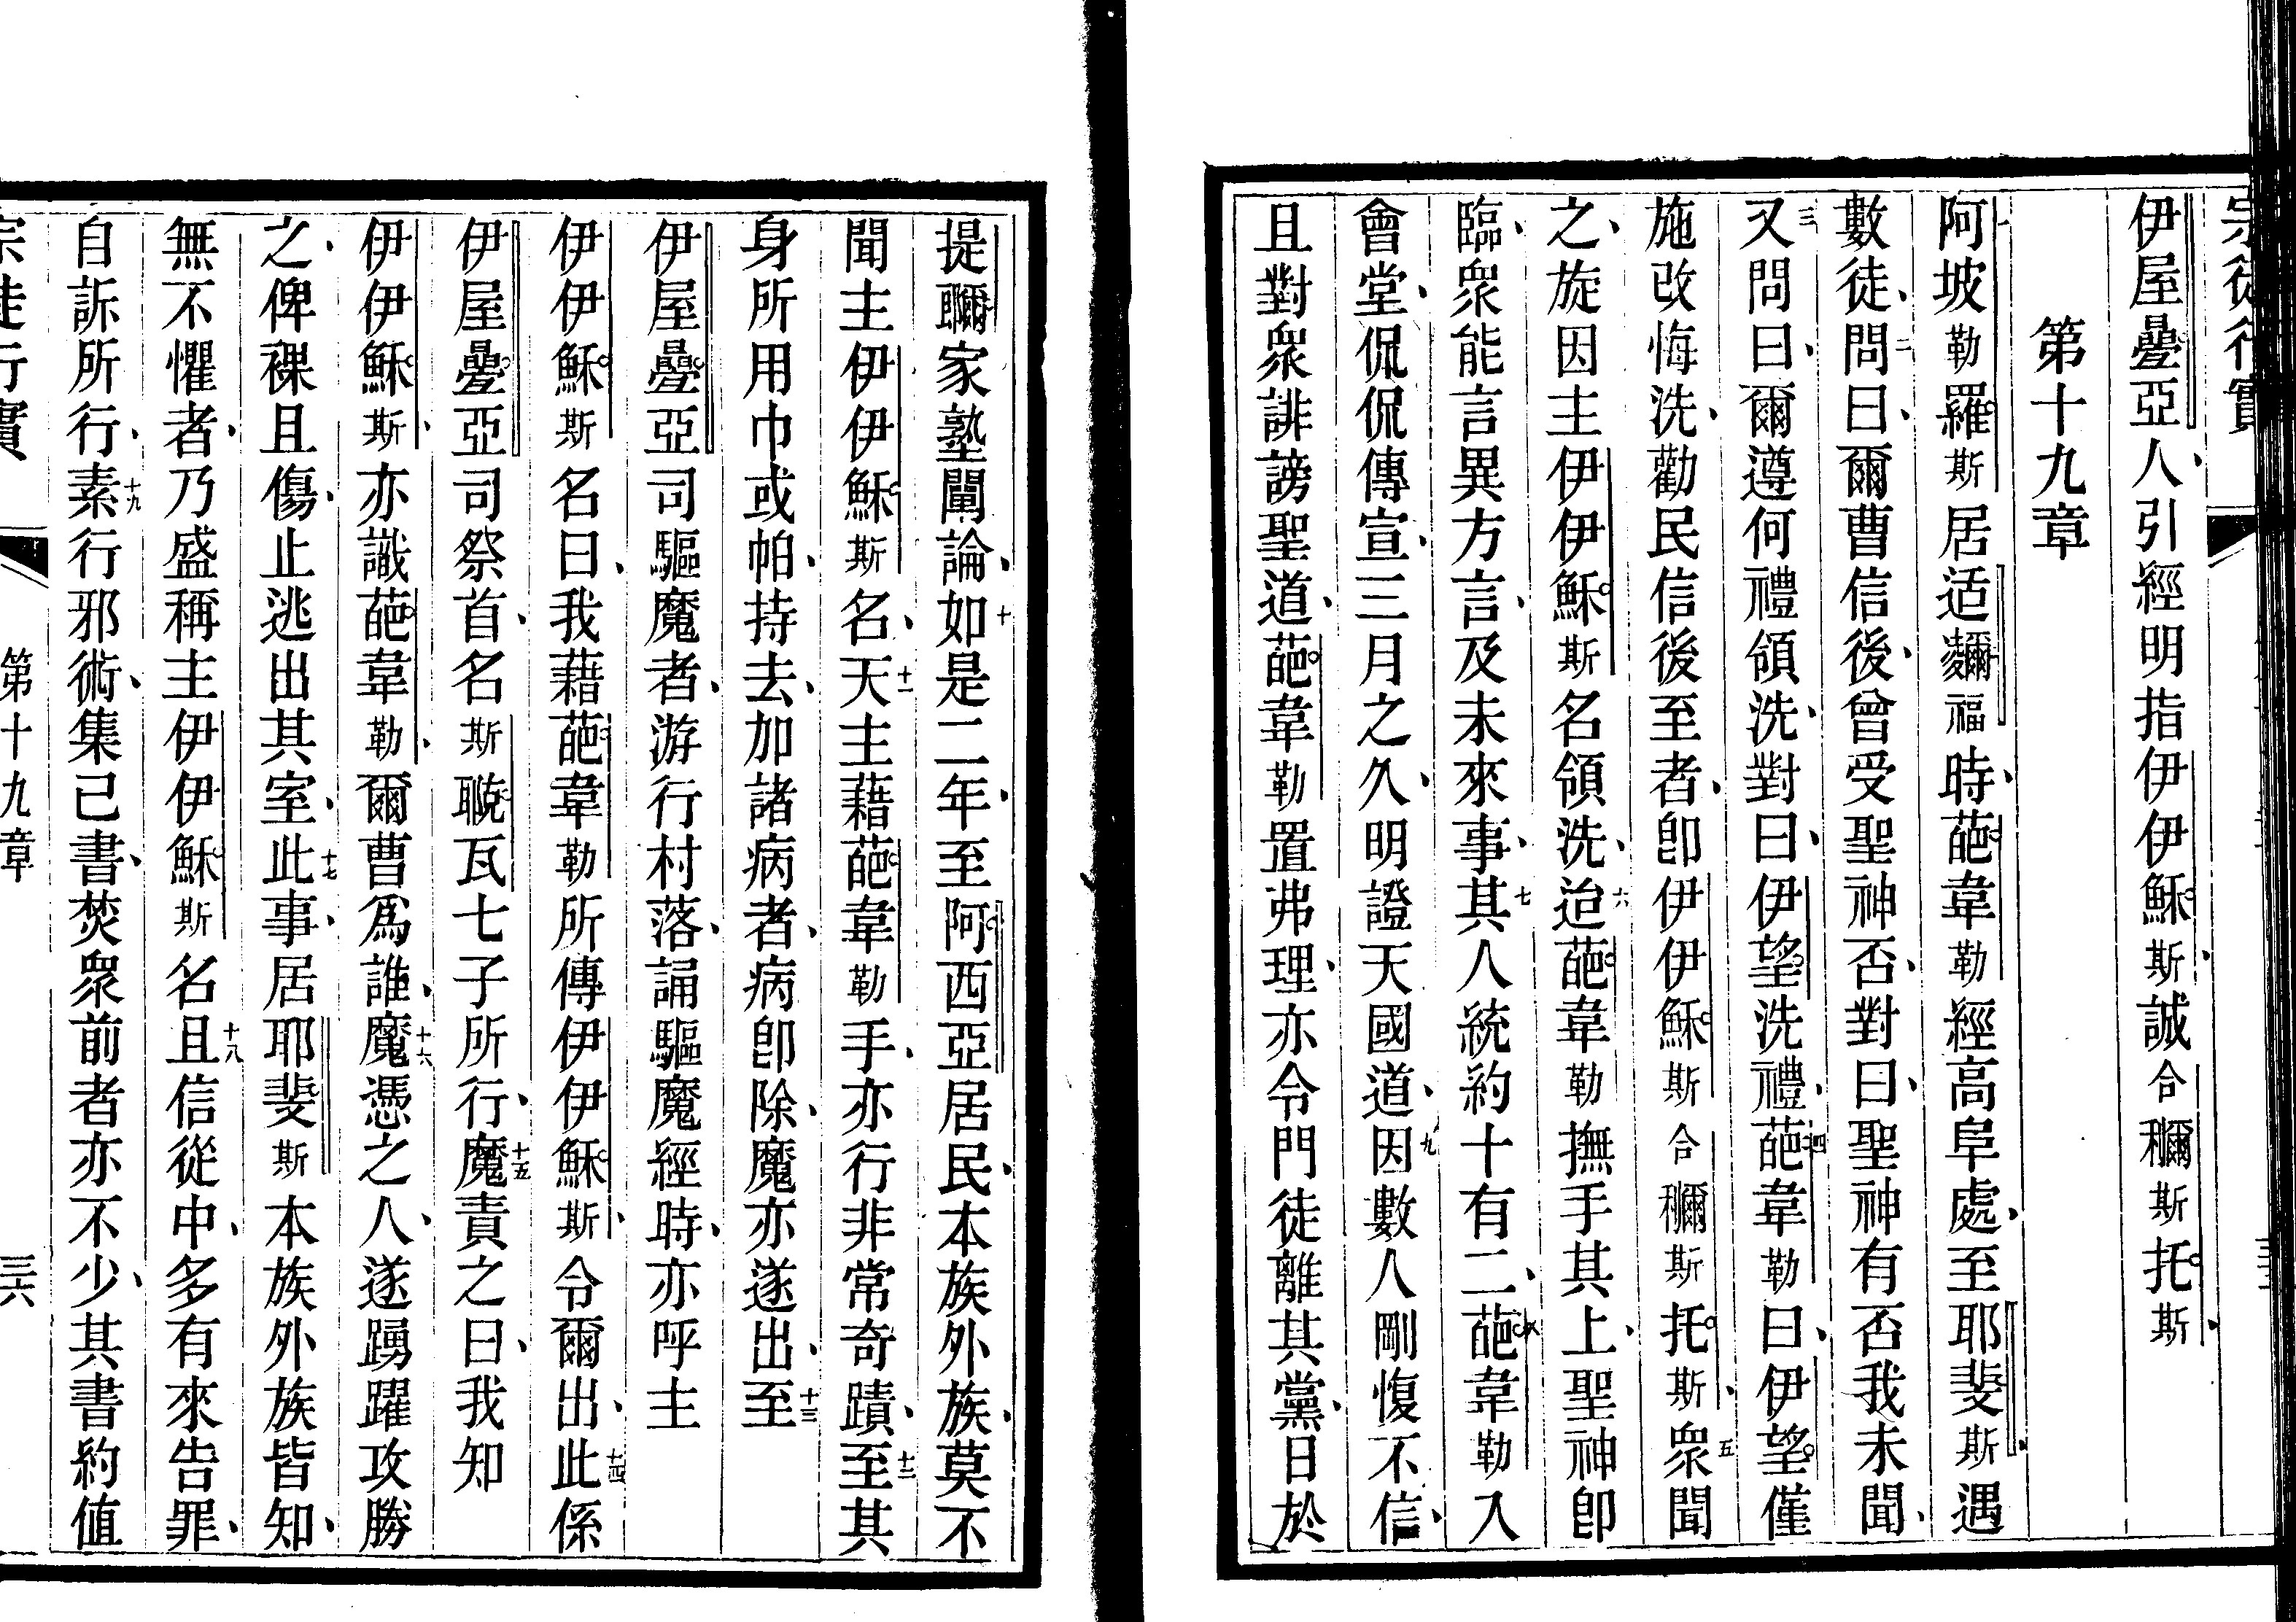 伊屋疊亞人、引經明指伊伊穌斯、誠合穪斯托斯、
第十九章
一阿坡勒羅斯居适䴢福時、葩韋勒經高阜處、至耶斐斯、遇
數徒、二問曰、爾曹信後、曾受聖神否、對曰、聖神有否我未聞、
三又問曰、爾遵何禮領洗、對曰、伊望洗禮、四葩韋勒曰、伊望僅
施改悔洗、勸民信後至者、卽伊伊穌斯合穪斯托斯、五衆聞
之、旋因主伊伊穌斯名領洗、六迨葩韋勒撫手其上、聖神卽
臨、衆能言異方言、及未來事、七其人統約十有二、八葩韋勒入
會堂、侃侃傳宣、三月之久、明證天國道、九因數人剛愎不信、
且對衆誹謗聖道、葩韋勒置弗理、亦令門徒離其黨、日於
提䎳家塾闡論、十如是二年、至阿西亞居民、本族外族、莫不
聞主伊伊穌斯名、十一天主藉葩韋勒手、亦行非常奇蹟、十二至其
身所用巾或帕、持去、加諸病者、病卽除、魔亦遂出、十三至
伊屋疊亞司驅魔者、游行村落、誦驅魔經時、亦呼主
伊伊穌斯名曰、我藉葩韋勒所傳伊伊穌斯、令爾出、十四此係
伊屋疊亞司祭首、名斯瓦七子所行、十五魔責之曰、我知
伊伊穌斯、亦識葩韋勒、爾曹爲誰、十六魔憑之人、遂踴躍攻勝
之、俾裸且傷、止逃出其室、十七此事、居耶斐斯本族外族皆知、
無不懼者、乃盛稱主伊伊穌斯名、十八且信從中、多有來告罪、
自訴所行、十九素行邪術、集己書、焚衆前者亦不少、其書約值
宗徒行實
第十九章
三六